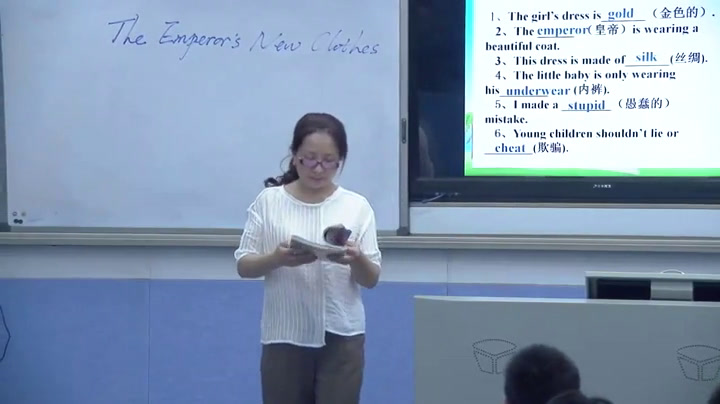 The Emperor's New Clothes
1、The girl's dress is gold （金色的）.
2、The emperor(皇帝) is wearing a
beautiful coat.
3、This dress is made of silk (丝绸).
4、The little baby is only wearing
his underwear (内裤).
5、I made a stupid （愚蠢的）
mistake.
6、Young children shouldn't lie or
cheat (欺骗).